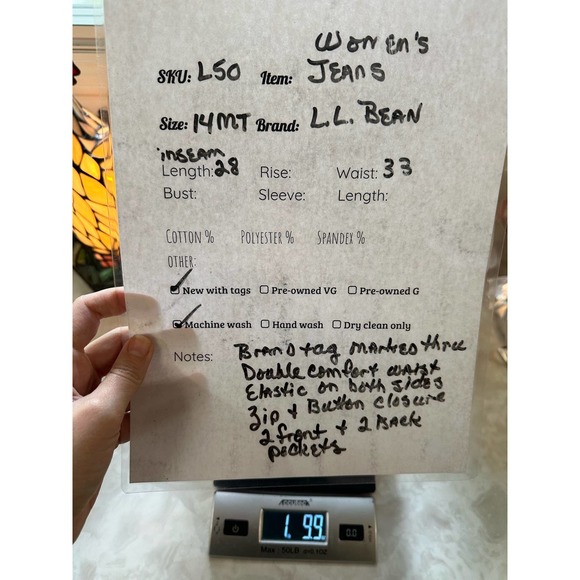 Women's
SKU: L50 Item: Jeans
Size: 14MT Brand: L.L. Bean
inseam
Length: 28 Rise: Waist: 33
Bust: Sleeve: Length:
Cotton % Polyester % Spandex %
Other:
New with tags Pre-owned VG Pre-owned G
Machine wash Hand wash Dry clean only
Notes: Brand tag marked three
Double comfort waist
Elastic on both sides
Zip + Button closure
2 front + 2 Back
pockets
Accuteck
1. 9.9
0.0
Max : 50LB d=0.1OZ